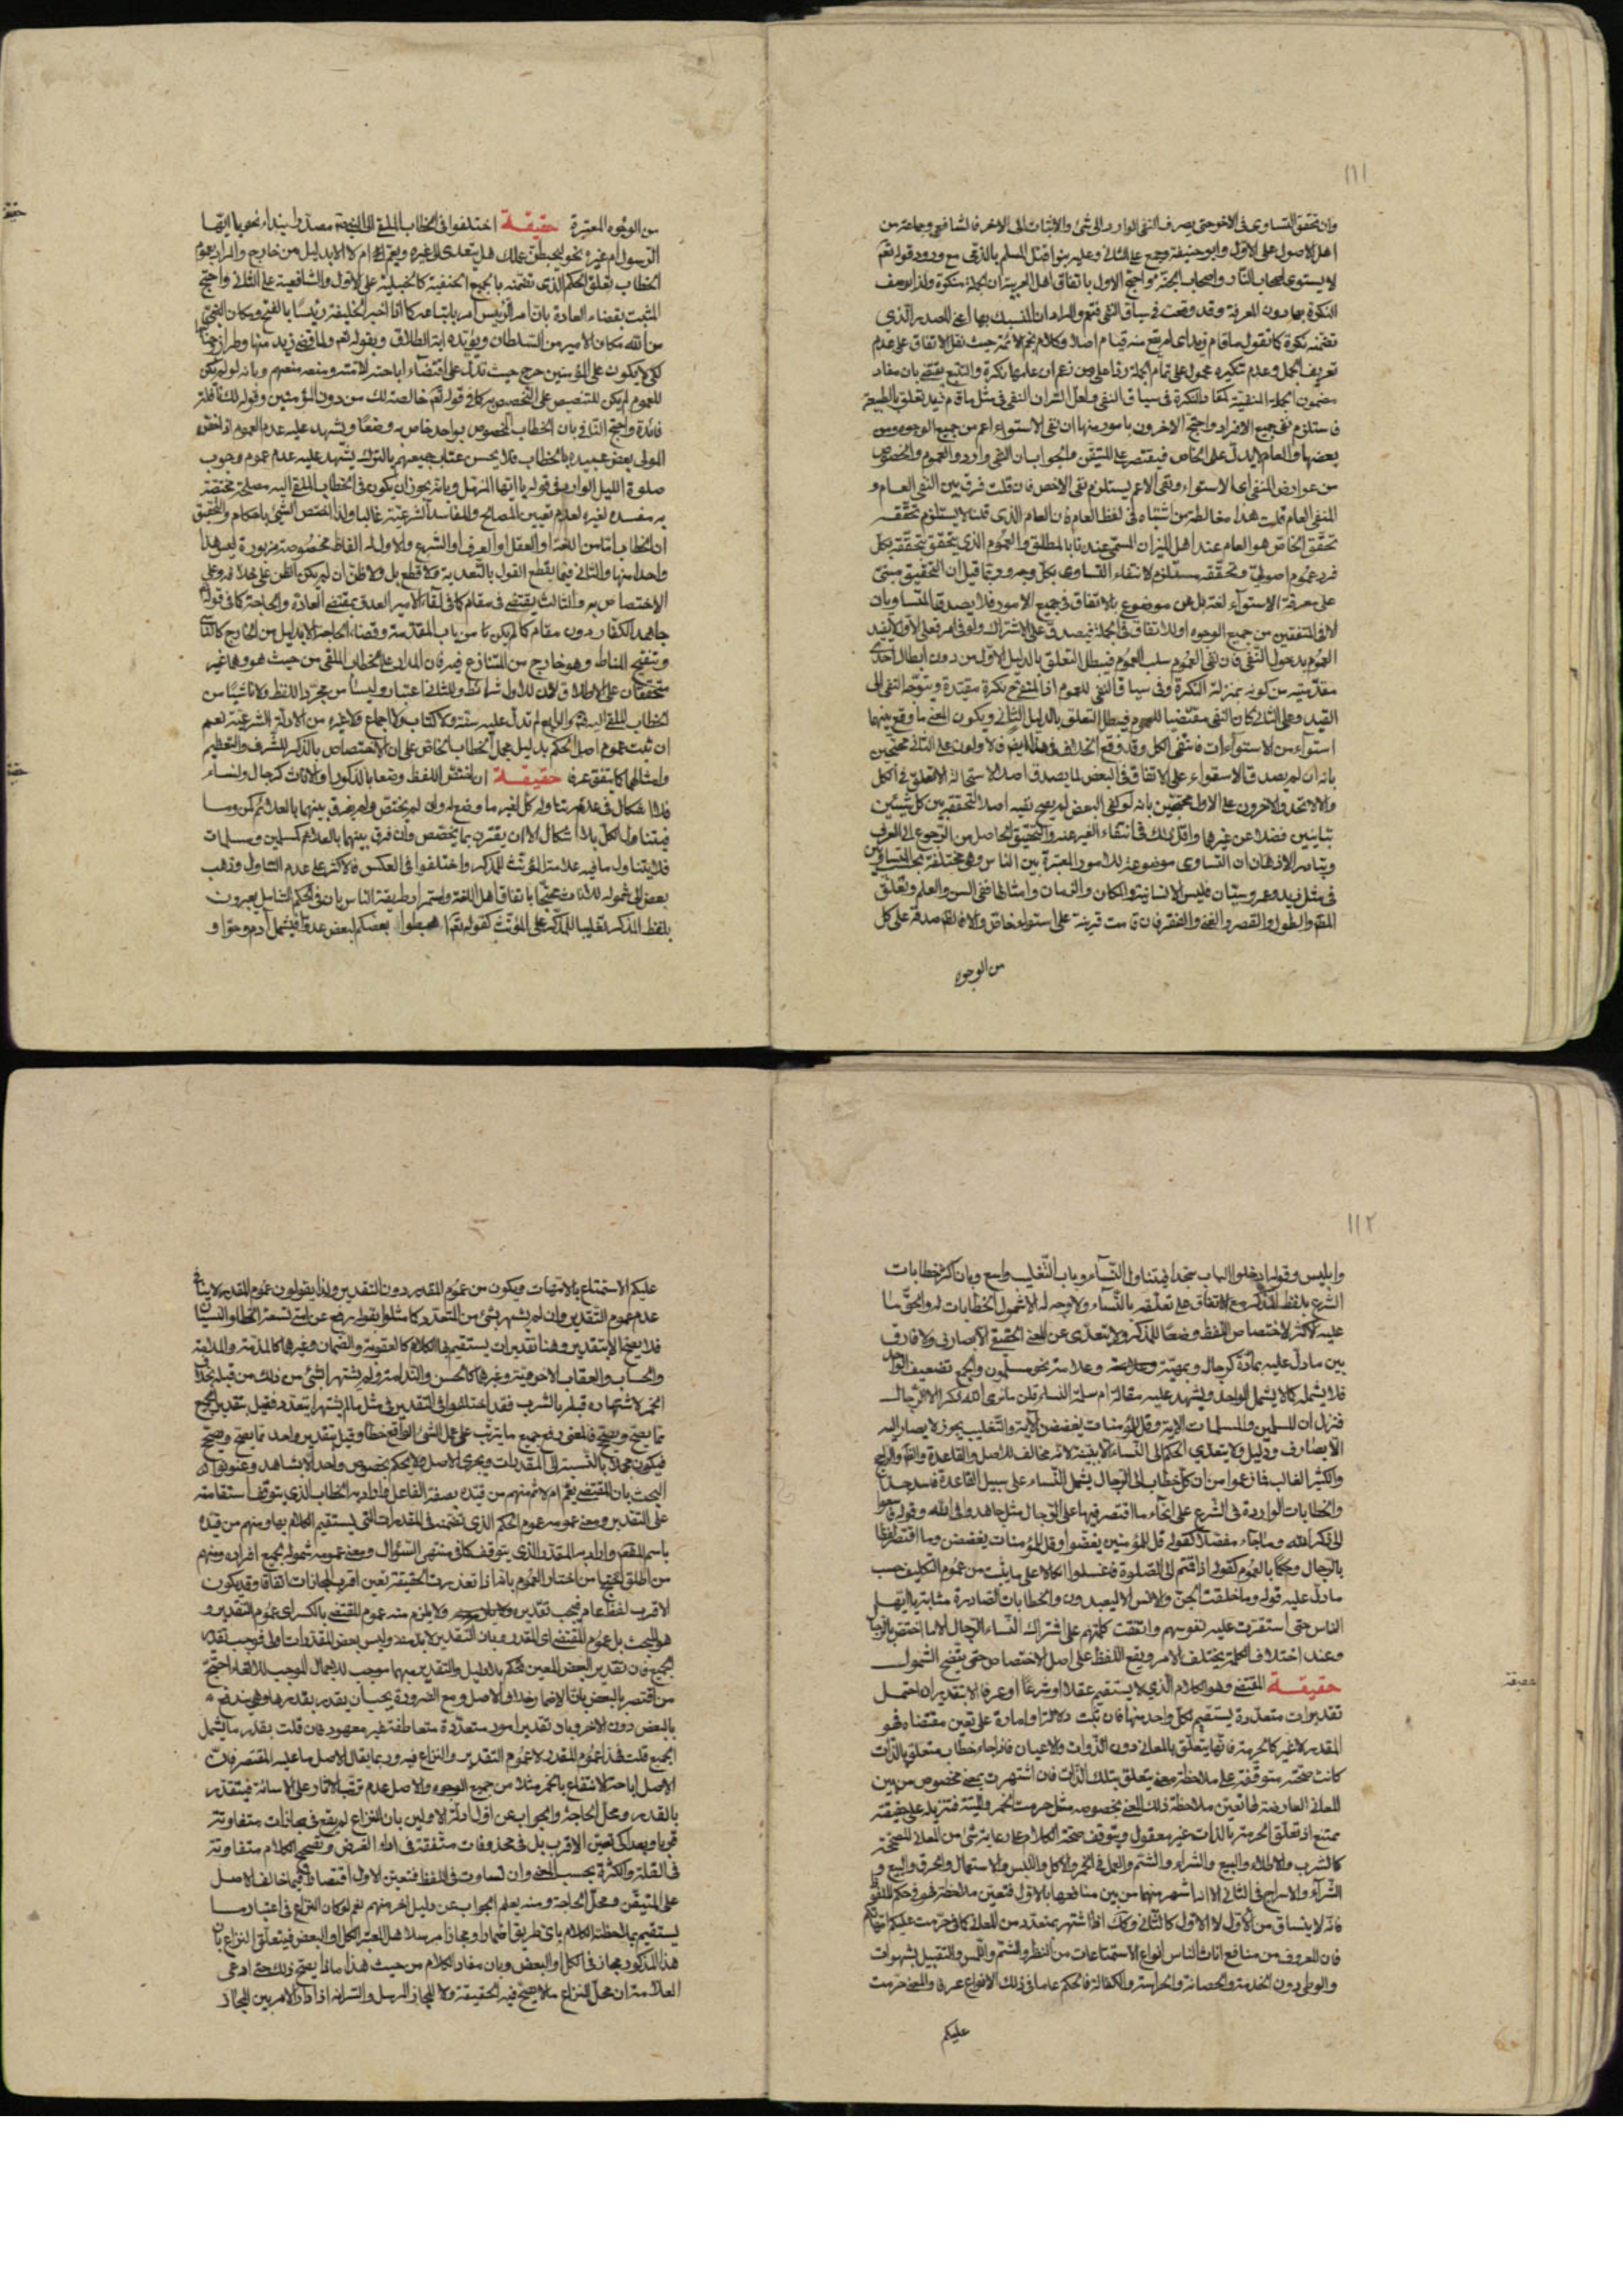 ١١١
وان تحقق التساوى فى الاخرحتى يصرف النفى الوارد الى شئ والاثبات الى الاخر فالشافعى وجماعة من
اهل الاصول على الاول وابو حنيفة وجمع على الثانى وعليه بنوا قتل المسلم بالذمى مع ورود قوله تعم
لا يستوى اصحاب النار واصحاب الجنة واحتج الاول باتفاق اهل العربية ان الجملة نكرة ولذا يوصف
النكرة بها دون المعرفة وقد وقعت فى سياق النفى فتعم والمراد ان المنسبك بها اعنى المصدر الذى
تضمنه نكرة كما تقول ما قام زيد اى لم يقع منه قيام اصلا وكلام نجم الائمة حيث نقل الاتفاق على عدم
تعريف الجمل وعدم تنكيره محمول على تمام الجملة رد على من زعم ان عليها نكرة والتتبع يقتضى بان مفاد
مضمون الجملة المنفية كمفاد النكرة فى سياق النفى ولعل السر ان النفى فى مثل ما قام زيد تعلق بالطبيعة
فاستلزم نفى جميع الافراد واحتج الاخرون بامور منها ان نفى الاستواء اعم من جميع الوجوه ومن
بعضها والعام لا يدل على الخاص فيقتصر على المتيقن والجواب ان النفى وارد والعموم والخصوص
من عوارض المنفى اى الاستواء ونفى الاعم يستلزم نفى الاخص فان قلت فرق بين النفى العام و
المنفى العام قلت هذا مغالطة من اشتباه فى لفظ العام فان العام الذى قلنا لا يستلزم تحققه
تحقق الخاص هو العام عند اهل الميزان المسمى عندنا بالمطلق والعموم الذى يتحقق بتحققه كل
فرد عموم اصولى وتحققه مستلزم لانتفاء التساوى بكل وجه وربما قيل ان التحقيق مبنى
على معرفة الاستواء لغة بل هى موضوع بالاتفاق فى جميع الامور فلا يصدق المتساويان
الا فى المتفقين من جميع الوجوه او للاتفاق فى الجملة فيصدق على الاشتراك ولو فى امر فعلى الاول لا يفيد
العموم بدخول النفى فان نفى العموم سلب العموم فيبطل التعلق بالدليل الاول من دون ابطال احدى
مقدمتيه من كونه بمنزلة النكرة وفى سياق النفى للعموم اذ المنفى ح نكرة مقيدة ويتوجه النفى الى
القيد وعلى الثانى كان النفى مقتضيا للعموم فيبطل التعلق بالدليل الثانى ويكون المعنى ما وقع بينهما
استواء من الاستواءات فانتفى الكل وقد وقع الخلاف فى هذا ايضا فالاولون على الثانى محتجين
بانه ان لم يصدق الاستواء على الاتفاق فى البعض لما يصدق اصلا لاستحالة التعلق فى الكل
والا لاتحد والاخرون على الاول محتجين بانه لو كفى البعض لم يصح نفيه اصلا لتحققه بين كل شيئين
متباينين فضلا عن غيرها واقل ذلك فى انتفاء الغير عنه والتحقيق الحاصل من الرجوع الى العرف
وتبادر الاذهان ان التساوى موضوعة للامور المعتبرة بين الناس وهى مختلفة بحسب
فى مثل زيد وعمرو سيان فليس الانسانية والمكان والزمان وامثالها ففى السن والعلم وتعلق
والطول والقصر والغنى والفقر فان قامت قرينة على استواء خاص والا فالظ صدقه على كل
من الوجوه
من الوجوه المعتبرة حقيقة اختلفوا فى الخطاب الملقى الى النبى ص مصدرا بنداء نحو يا ايها
الرسول ام غيره نحو ليحبطن عملك هل يتعدى الى غيره ويعم ام لا الا بدليل من خارج والمراد بعموم
الخطاب تعلق الحكم الذى تضمنه بالجميع الحنفية كالحنبلية على الاول والشافعية على الثانى واحتج
المثبت بقضاء العادة بان امر الرئيس امر باتباعه كما اذا اخبر الخليفة رئيسا بالفتح ومكان النبى
من الله مكان الامير من السلطان ويؤيده اية الطلاق وبقوله تعم ولما قضى زيد منها وطرا زوجناكها
لكى لا يكون على المؤمنين حرج حيث تدل على اقتضاء اباحته لامته ومنعه منعهم وبانه لو لم يكن
للعموم لم يكن للتنصيص على التخصيص به كما فى قوله تعم خالصة لك من دون المؤمنين وقوله نافلة لك
فائدة واحتج الثانى بان الخطاب المخصوص بواحد خاص به وضعا ويشهد عليه عدم العموم اذا خص
المولى بعض عبيده بالخطاب فلا يحسن عتاب جميعهم بالترك يشهد عليه عدم عموم وجوب
صلوة الليل الوارد فى قوله يا ايها المزمل وبانه يجوز ان يكون فى الخطاب الملقى اليه مصلحة مختصة
به مفسدة لغيره لعدم تعيين المصالح والمفاسد الشرعية غالبا ولذا اختص النبى باحكام والتحقيق
ان الخطاب اما من اللغة او العقل او العرف او الشرع والاول له الفاظ مخصوصة مزبورة ليس هذا
واحدا منها والثانى فيما يقطع القول بالتعدية ولا قطع بل ولا ظن ان لم يكن بالظن على خلافه وعلى
الاختصاص به والثالث يقتضى فى مقام كما فى لقاء الامير العدو بمقتضى العادة والحاجة كما فى قوله
جاهد الكفار دون مقام كما لم يكن تا من باب المقدمة وقضاء الحاجة الا بدليل من الخارج كالتاسى
وتنقيح المناط وهو خارج من المتنازع فيه فان المدار على الخطاب الملقى من حيث هو وهما غير
متحققان على الاطلاق لان للاول شرائط وللثانى اعتبار وليسا من مجرد اللفظ ولا ناشيا من
الخطاب الملقى اليه والرابع لم تدل عليه سنة ولا كتاب ولا اجماع ولا غيره من الادلة الشرعية نعم
ان ثبت عموم اصل الحكم بدليل حمل الخطاب الخاص على ان الاختصاص بالذكر للشرف والتعظيم
وامثالهما كما يتفق عرفا حقيقة ان اختص اللفظ وضعا بالذكور او الاناث كرجال ونساء
فلا اشكال فى عدم تناوله كل لغير ما وضع له وان لم يختص ولم يفرق بينهما بالعلائم كمن وما
فيتناول لكل بلا اشكال الا ان يقترن بما يخصص وان فرق بينهما بالعلائم كمسلمين ومسلمات
فلا يتناول ما فيه علامة المؤنث للمذكر واختلفوا فى العكس فالاكثر على عدم التناول وذهب
بعض الى شموله للاناث محتجا باتفاق اهل اللغة واستمرار طريقة الناس بان فى الحكم الشامل يعبرون
بلفظ المذكر تغليبا للمذكر على المؤنث كقوله تعم اهبطوا بعضكم لبعض عدو فيشمل ادم وحوا و
١١٢
وابليس وقوله ادخلوا الباب سجدا فيتناول النساء وباب التغليب واسع وبان اكثر خطابات
الشرع بلفظ المذكر مع الاتفاق على تعلقه بالنساء ولا وجه له الا شمول الخطابات له والحق ما
عليه الاكثر لاختصاص اللفظ وضعا للمذكر ولا يتعدى عن المعنى الحقيقى الا بصارف ولا فارق
بين ما دل عليه بمادة كرجال وبهيئة وعلامة نحو مسلمون والجمع تضعيف الواحد
فلا يشمله كما لا يشمل الواحد ويشهد عليه مقالة ام سلمة النساء قلن ما نرى الله ذكر الا الرجال
فنزل ان المسلمين والمسلمات الاية وقل للمؤمنات يغضضن الاية والتغليب يجوز لا يصار اليه
الا بصارف ودليل ولا يتعدى الحكم الى النساء الا بقرينة لانه مخالف للاصل والقاعدة
والكثير الغالب فما زعموا من ان كل خطاب الى الرجال يشمل النساء على سبيل القاعدة فاسد جدا
والخطابات الواردة فى الشرع على انحاء ما اقتصر فيها على الرجال مثل جاهدوا فى الله وقوله فاسعوا
الى ذكر الله وما جاء مفصلا كقوله قل للمؤمنين يغضوا وقل للمؤمنات يغضضن وما اقتصر لفظا
بالرجال وحكما بالعموم كقوله اذا قمتم الى الصلوة فاغسلوا اتكالا على ما يثبت من عموم التكليف حسب
ما دل عليه قوله وما خلقت الجن والانس الا ليعبدون والخطابات الصادرة مشابة يا ايها
الناس حتى استقرت عليه نفوسهم واتفقت كلمتهم على اشتراك النساء الرجال الا ما اختص بالرجال
وعند اختلاف الكلمة يختلف الامر ويقع اللفظ على اصل الاختصاص حتى يتضح الشمول
حقيقة المقتضى وهو الكلام الذى لا يستقيم عقلا او شرعا او عرفا الا بتقدير ان احتمل
تقديرات متعددة يستقيم لكل واحد منها فان ثبت دلالة او امارة على تعين مقتضاه فهو
المقدر لا غير كالحرمة فانها يتعلق بالمعانى دون الذوات والاعيان فاذا جاء خطاب متعلق بالذات
كانت صحته متوقفة على ملاحظة معنى يتعلق بتلك الذات فان اشتهرت بمعنى مخصوص من بين
المعانى العارضة لها تعين ملاحظة ذلك المعنى بخصوصه مثل حرمت الخمر والميتة فتنزيله على حقيقة
ممتنع اذ تعلق الحرمة بالذات غير معقول ويتوقف صحة الكلام على رعاية شئ من المعانى الصحيحة
كالشرب والاطلاء والبيع والشراء والشتم والحمل فى الخمر والاكل واللبس والاستعمال والحرق والبيع و
الشراء والاسراج فى الثانى الا انه اشهر منها من بين منافعها بالاول فتعين ملاحظته فهو فى حكم الملفوظ
فانه لا ينساق من الاول الا الاول كالثانى وكذا اذا اشتهر بمتعدد من المعانى كما فى حرمت عليكم امهاتكم
فان المعروف من منافع اناث الناس انواع الاستمتاعات من النظر والشتم واللمس والتقبيل بشهوات
والوطى دون الخدمة والحضانة والحراسة والكفالة فالحكم عاما فى ذلك الانواع عرفى والمعنى حرمت
عليكم
عليكم الاستمتاع بالامهات ويكون من عموم المقدر دون التقدير ولذا يقولون عموم المقدر لا ينافى
عدم عموم التقدير وان لم يشتهر بشئ من المتعدد كما مثلوا بقوله رفع عن امتى تسعة الخطا والنسيان
فلا يصح الا بتقدير وهنا تقديرات يستقيم بها الكلام كالعقوبة والضمان وغيرها كالمذمة والملامة
والحساب والعقاب الاخروية وغيرها كالحسن والندامة ولم يشتهر الشئ من ذلك من قبيل بخلاف
الخمر لاشتهاره قبله بالشرب فقد اختلفوا فى التقدير فى مثل ما لم يشتهر ايتعدد فقيل بتقدير الجميع
مما يصح ويصح فالمعنى رفع جميع ما يترتب على عمل الشئ الواقع خطا وقيل بتقدير واحد مما يصح ويصح
فيكون مجملا بالنسبة الى المقدرات ويجرى الاصل ولا يحكم بخصوص واحد الا بشاهد وعنونوا
البحث بان المقتضى يعم ام لا ثم منهم من قيده بصيغة الفاعل واراد به الخطاب الذى يتوقف استقامته
على التقدير ومعنى عمومه عموم الحكم الذى تضمنه فى المقدرات التى يستقيم الكلام بها ومنهم من قيده
باسم المفعول واراد به المقدر الذى يتوقف كما فى منتهى السؤال ومعنى عمومه شموله بجميع افراده ومنهم
من اطلق احتج من اختار العموم بانه اذا تعذرت الحقيقة تعين اقرب المجازات اتفاقا وقد يكون
الاقرب لفظ عام فيجب تقديره ولا يلزم منه عموم المقتضى بالكسر اى عموم التقدير و
هو المبحث بل عموم المقتضى اى المقدر وبان التقدير لا بد منه وليس بعض المقدرات اولى فوجب تقدير
الجميع فان تقدير البعض المعين تحكم بلا دليل والتقدير مبهما موجب للاجمال الموجب للالغاء احتج
من اقتصر بالبعض بان الاضمار خلاف الاصل ومع الضرورة يجب ان يقدر بقدرها وهى يندفع
بالبعض دون الاخر وبان تقدير امور متعددة متعاطفة غير معهود فان قلت يقدر ما يشمل
الجميع قلت فى هذا عموم المقدر لا عموم التقدير والنزاع فيه وربما يقال الاصل ما عليه المقتصر فان
الاصل اباحة الانتفاع بالخمر مثلا من جميع الوجوه والاصل عدم ترتب الاثار على الاسائة فيتقدر
بالقدر ومحل الحاجة والجواب عن اول ادلة الاولين بان النزاع لم يقع فى مجازات متفاوتة
قربا وبعدا كى تعين الاقرب بل فى محذوفات متفقة فى اداء الغرض وتصحيح الكلام متفاوتة
فى القلة والكثرة بحسب المعنى وان تساوت فى اللفظ فتعين الاول اقتصارا فيما خالف الاصل
على المتيقن ومحل الحاجة ومنه يعلم الجواب عن دليل اخر منهم نعم لو كان النزاع فى اعتبار ما
يستقيم بملاحظة الكلام باى طريق اضمارا ومجازا مرسلا هل المعتبر الكل او البعض فيتعلق النزاع بان
هذا المذكور مجاز فى الكل او البعض وبان مفاد الكلام من حيث هذا ماذا يصح ذلك حتى ادعى
العلامة ان محل النزاع ما لا يصح فيه الحقيقة ولا المجاز المرسل والسر انه اذا دار الامر بين المجاز
حقيقة
حقيقة
حقيقة